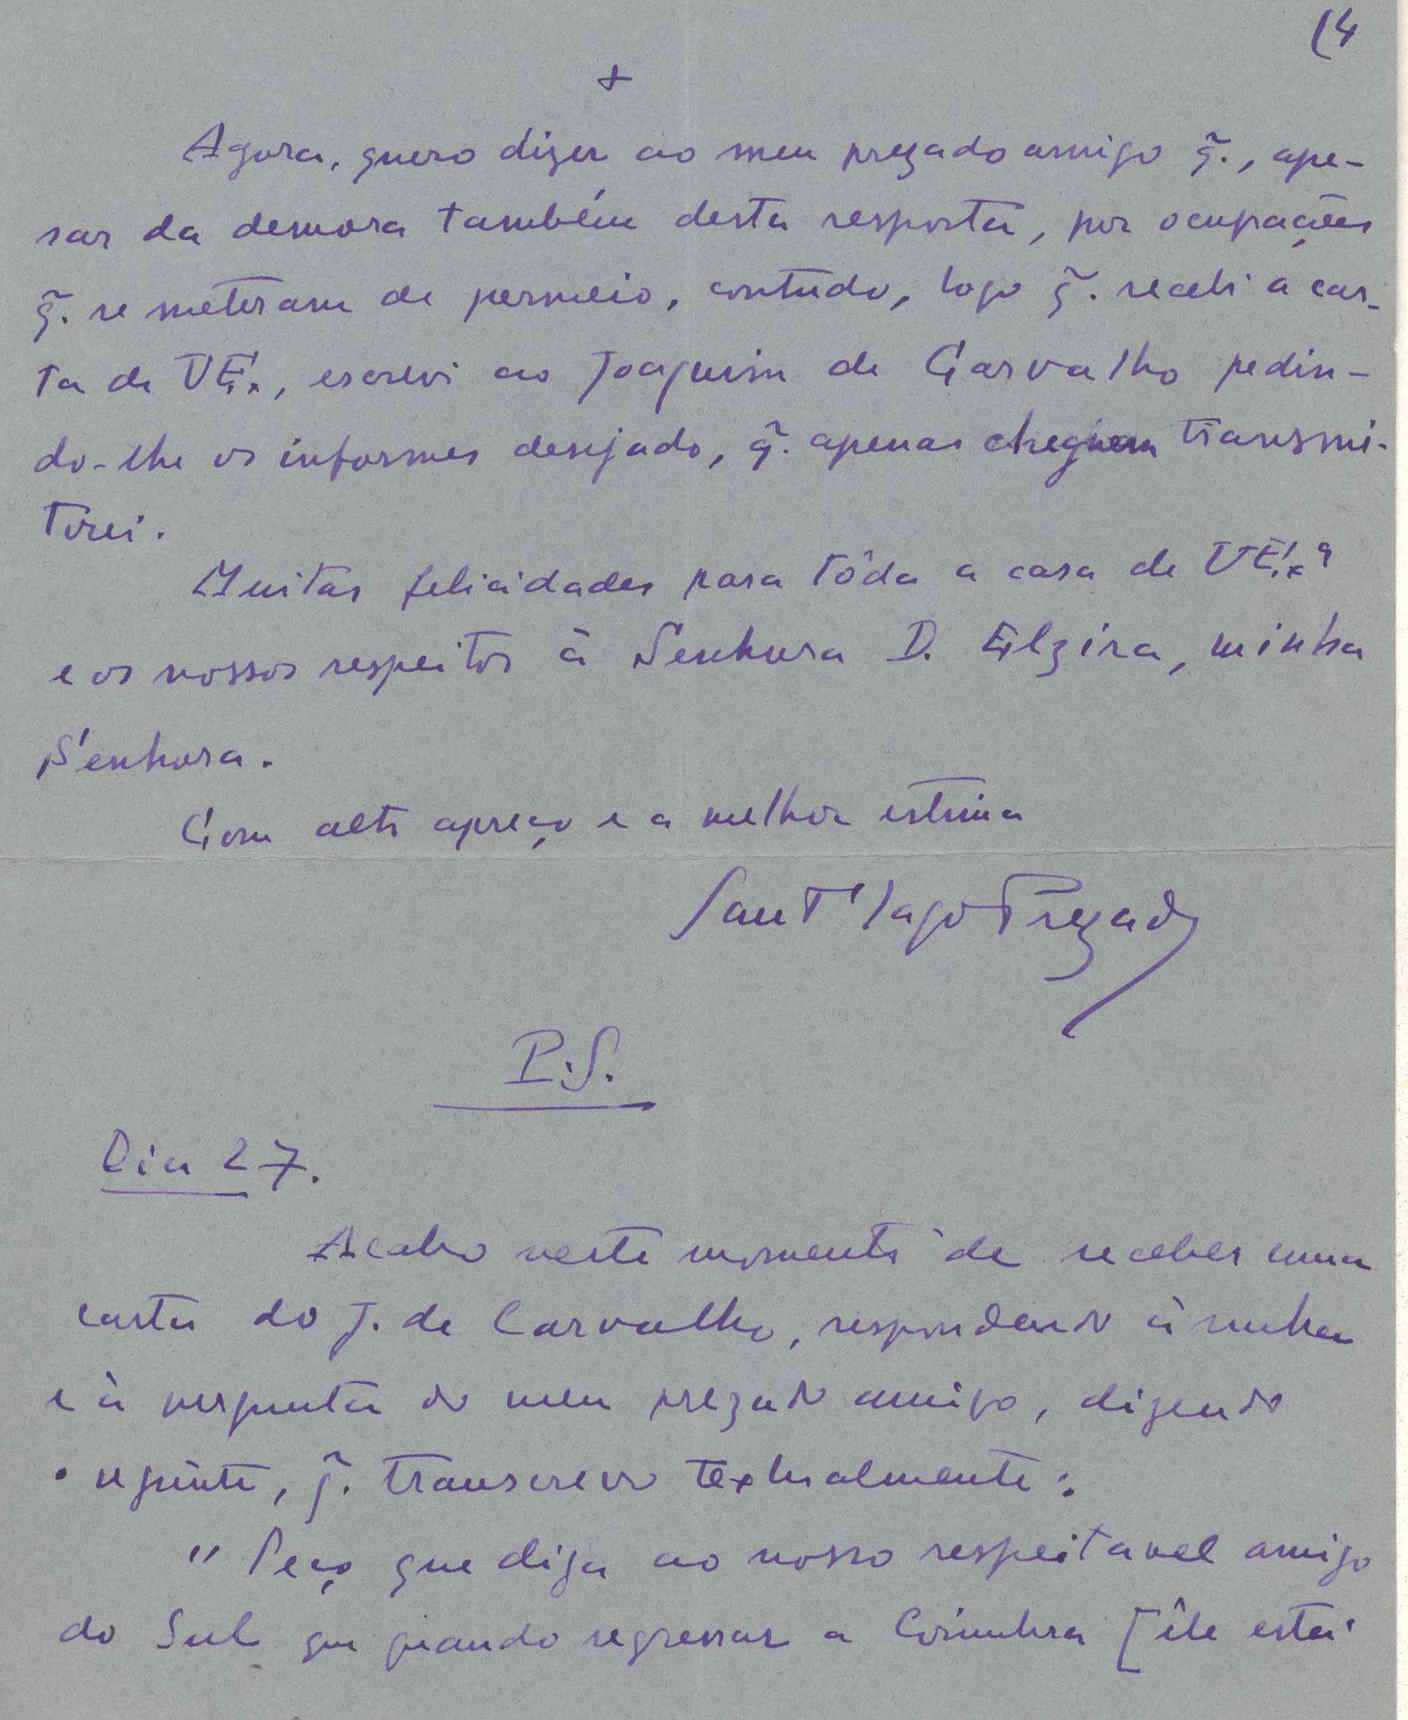 (4
+
Agora, quero dizer ao meu prezado amigo q̃., ape-
sar da demora também desta resposta, por ocupações
q̃. se meteram de permeio, contudo, logo q̃. recebi a car-
ta de V.Ex., escrevi ao Joaquim de Carvalho pedin-
do-lhe os informes desejado, q̃. apenas cheguem transmi-
tirei.
Muitas felicidades para tôda a casa de V.Ex.ª
e os nossos respeitos à Senhora D. Elzira, minha
Senhora.
Com alto apreço e a melhor estima
Sant'Iago Prezado
P.S.
Dia 27.
Acabo neste momento de receber uma
carta do J. de Carvalho, respondendo à minha
e à pergunta do meu prezado amigo, dizendo
o seguinte, q̃. transcrevo textualmente:
"Peço que diga ao nosso respeitavel amigo
do Sul que quando regressar a Coimbra [êle está